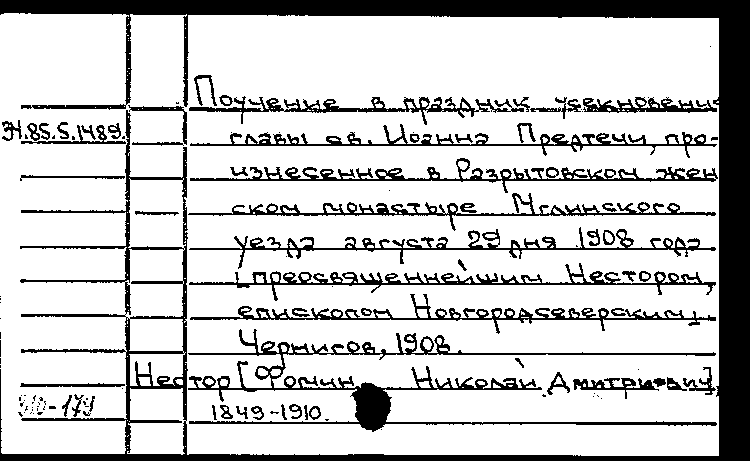 Поучение в праздник усекновени
34.85.5.1489. главы св. Иоанна Предтечи, про-
изнесенное в Разрытовском жен
ском монастыре Мглинского
уезда августа 29 дня 1908 года
[преосвященнейшим Нестором,
епископом Новгородсеверским].
Чернигов, 1908.
Нестор [Фомин Николай Дмитриевич],
310-179 1849-1910.